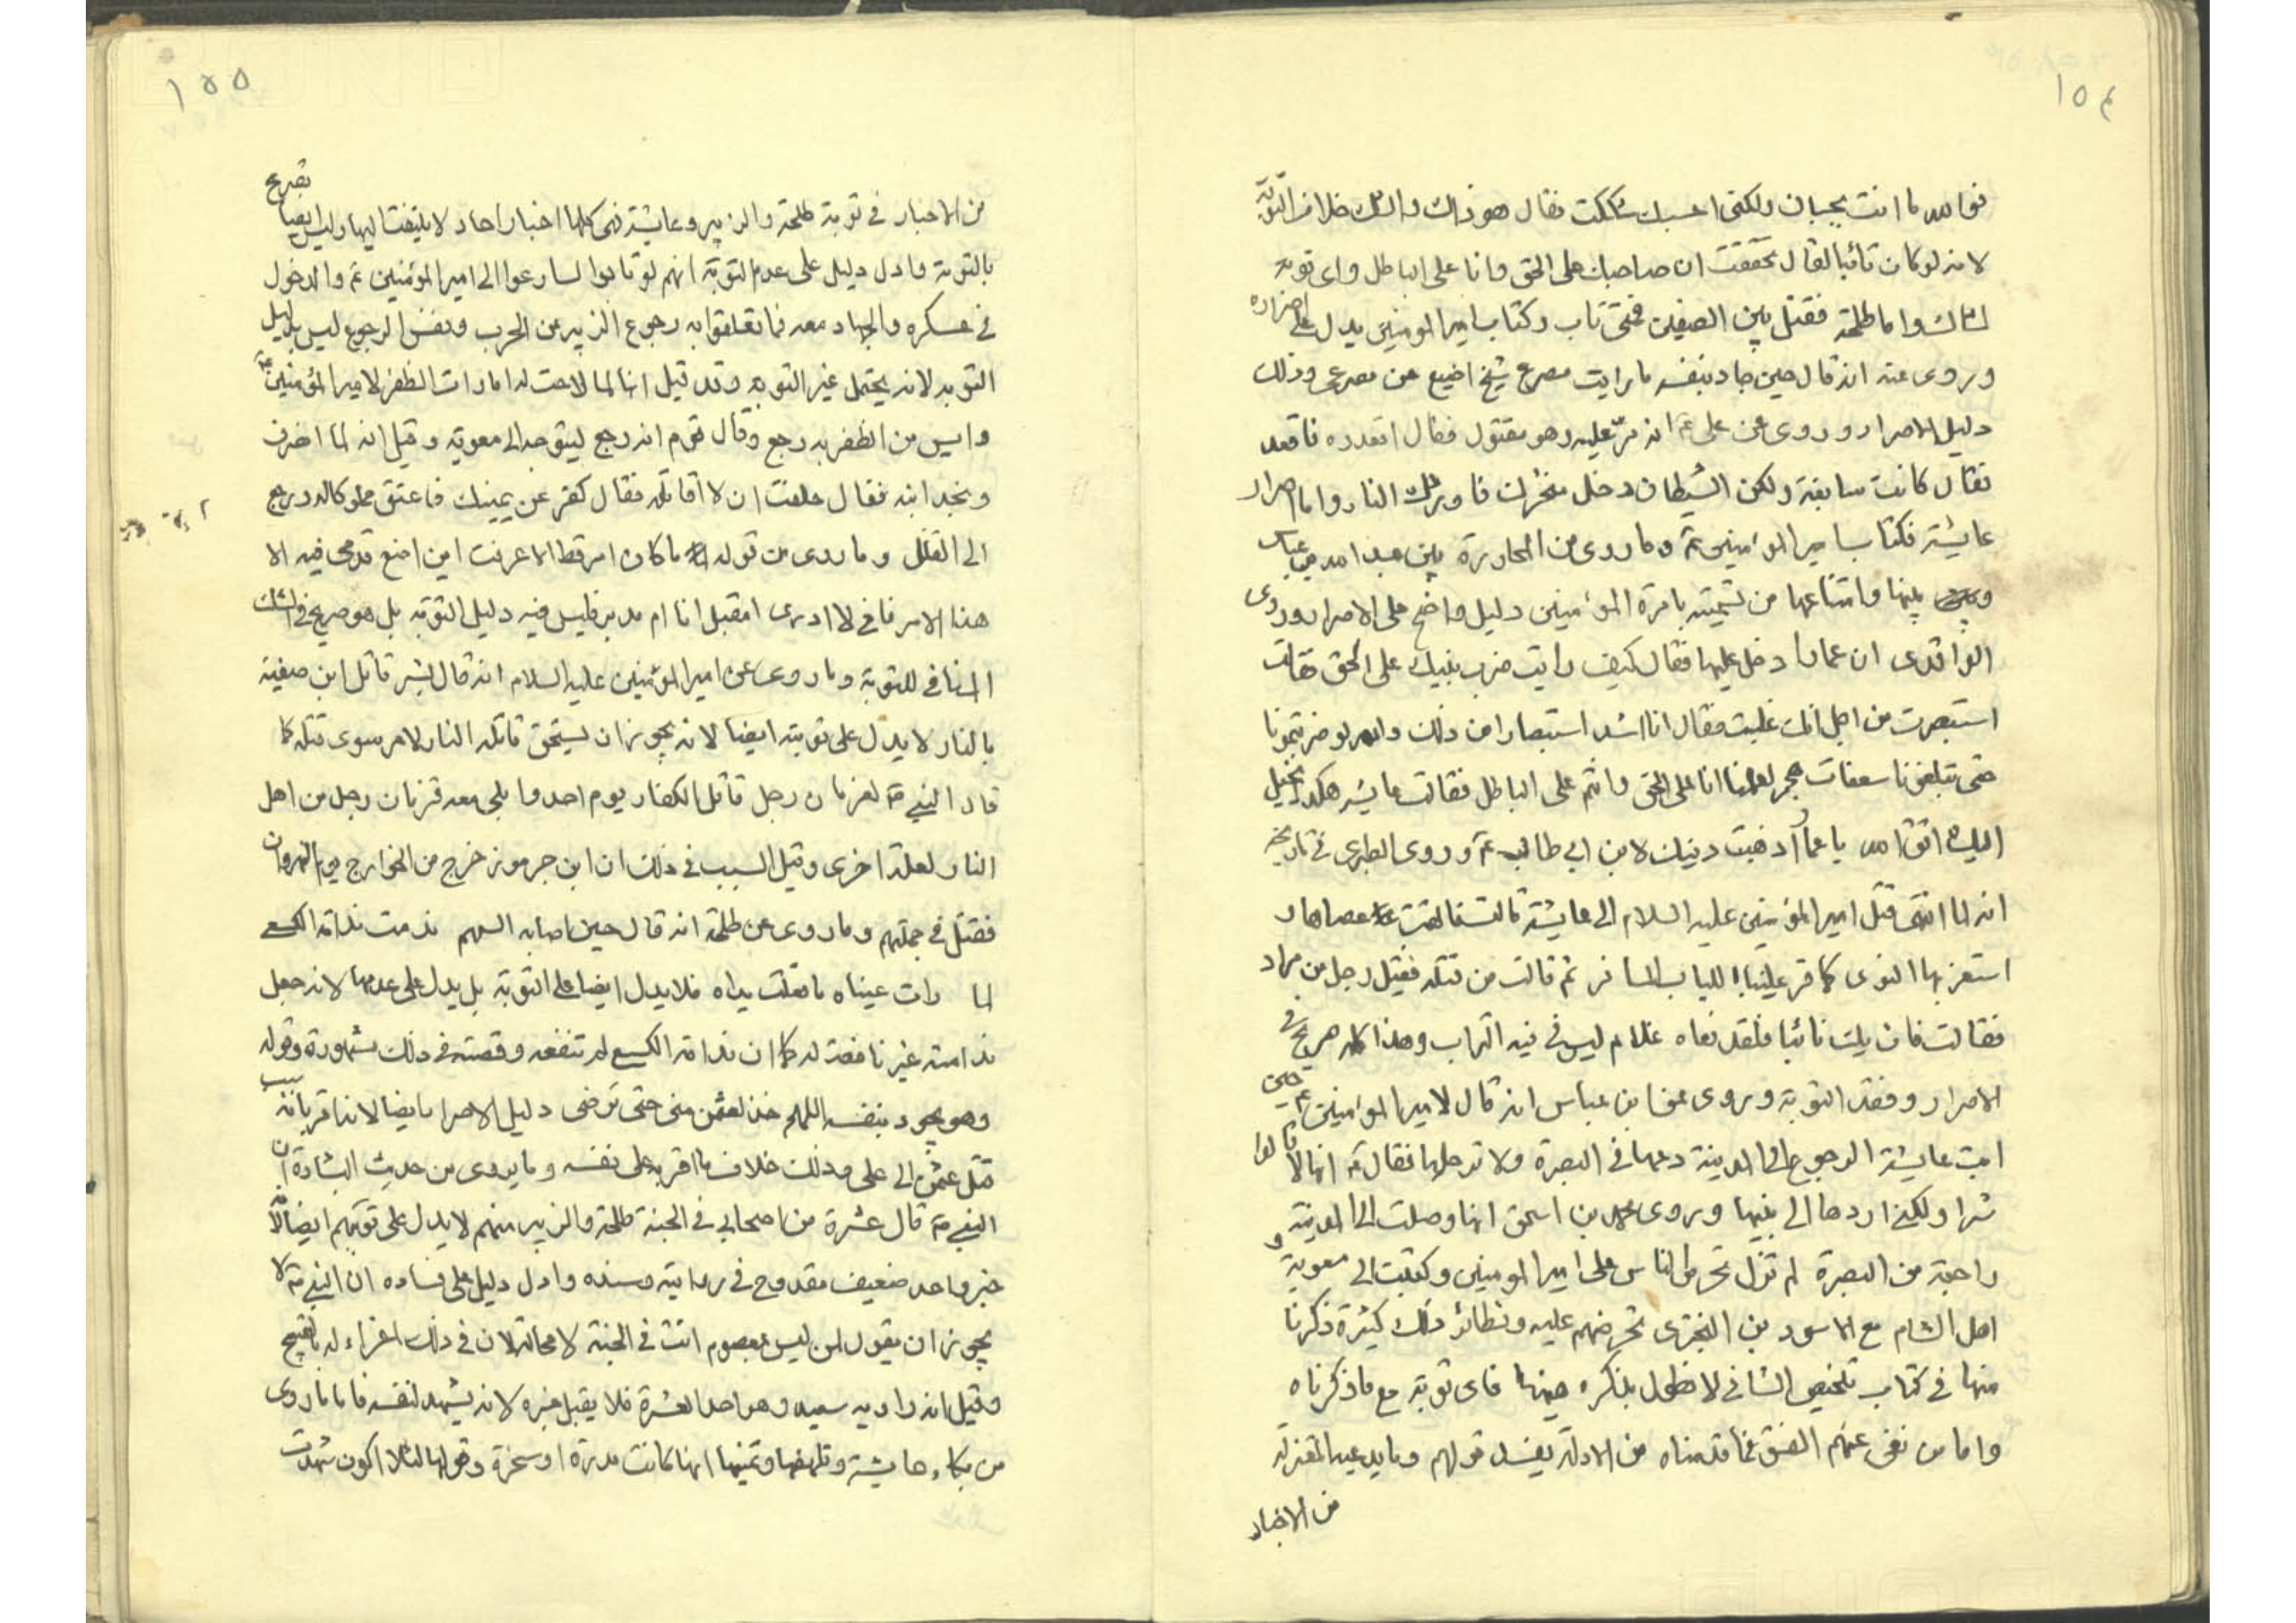 ١٥٤
فوالله ما انت بجبان ولكنى احسبك شككت فقال هو ذاك والشك خلاف التوبة
لانه لو كان تائبا لقال تحققت ان صاحبك على الحق وانا على الباطل واى توبة
لشاك واما طلحة فقتل بين الصفين فمتى تاب وكتاب امير المومنين يدل على اصراره
وروى عنه انه قال حين جاد بنفسه ما رايت مصرع شيخ اضيع من مصرعى وذلك
دليل الاصرار وروى عن على ع انه مر عليه وهو مقتول فقال اقعدوه فاقعد
فقال كانت سابقة ولكن الشيطان دخل منخرك فاوردك النار واما اصرار
عايشة فكتاب امير المؤمنين ع وما روى من المحاورة بين عبد الله بن عباس
وبينها وامتناعها من تسميته بامرة المؤمنين دليل واضح على الاصرار وروى
الواقدى ان عمارا دخل عليها فقال كيف رايت ضرب بنيك على الحق فقالت
استبصرت من اجل انك غلبت فقال انا اشد استبصارا من ذلك والله لو ضربتمونا
حتى تبلغونا سعفات هجر لعلمنا انا على الحق وانتم على الباطل فقالت عايشه هكذا يخيل
اليك اتق الله يا عمار اذهبت دينك لابن ابي طالب ع وروى الطبرى فى تاريخه
انه لما انتهى قتل امير المؤمنين عليه السلام الى عايشة قالت فالقت عصاها و
استقر بها النوى كما قر عينا بالاياب المسافر ثم قالت من قتله فقيل رجل من مراد
فقالت فان يك نائيا فلقد نعاه غلام ليس فى فيه التراب وهذا كله صريح فى
الاصرار وفقد التوبة وروى عن ابن عباس انه قال لامير المؤمنين ع حين
ابت عايشة الرجوع الى المدينة دعها فى البصرة ولا ترحلها فقال ع انها لا تالوا
شرا ولكنى اردها الى بيتها وروى محمد بن اسحق انها وصلت الى المدينة
راجعة من البصرة لم تزل تحرض الناس على امير المومنين وكتبت الى معوية و
اهل الشام مع الاسود بن البخترى تحرضهم عليه ونظائر ذلك كثيرة ذكرنا
منها فى كتاب تلخيص الشافى لا نطول بذكره هيهنا فاى توبة مع ما ذكرناه
واما من نفى عنهم الفسق فما قدمناه من الادلة يفسد قولهم وما يدعيه المعتزلة
من الاخبار
١٥٥
من الاخبار فى توبة طلحة والزبير وعايشة فهى كلها اخبار احاد لا يلتفت اليها وليس ايضا تصريح
بالتوبة وادل دليل على عدم التوبة انهم لو تابوا لسارعوا الى امير المؤمنين ع والدخول
فى عسكره والجهاد معه فما تعلقوا به رجوع الزبير عن الحرب ونفس الرجوع ليس بدليل
التوبه لانه يحتمل غير التوبة وقد قيل انه لما لاحت له امارات الظفر لامير المؤمنين ع
وايس من الظفر به رجع وقال قوم انه رجع ليتوجه الى معوية وقيل انه لما انصرف
وبخه ابنه فقال حلفت ان لا اقاتله فقال كفر عن يمينك فاعتق مملوكا له ورجع
الى القتال وما روى من قوله ما كان امر قط الا عرفت اين اضع قدمى فيه الا
هذا الامر فانى لا ادرى امقبل انا ام مدبر فليس فيه دليل التوبة بل هو صريح فى الشك
المنافى للتوبة وما روى عن امير المؤمنين عليه السلام انه قال بشر قاتل ابن صفية
بالنار لا يدل على توبته ايضا لانه يجوز ان يستحق قاتله النار لامر سوى قتله كما
قال النبى ص لقزمان رجل قاتل الكفار يوم احد وابلى معه قزمان رجل من اهل
النار لعلة اخرى وقيل السبب فى ذلك ان ابن جرموز خرج من الخوارج يوم النهروان
فقتل فى جملتهم وما روى عن طلحة انه قال حين اصابه السهم ندمت ندامة الكسعى
لما رات عيناه ما فعلت يداه فلا يدل ايضا على التوبة بل يدل على عدمها لانه جعل
ندامته غير نافعة له كما ان ندامة الكسعى لم تنفعه وقصته فى ذلك مشهورة وقوله
وهو يجود بنفسه اللهم خذ لعثمن منى حتى ترضى دليل الاصرار ايضا لانه اقر بانه سبب
قتل عثمن الى على وذلك خلاف ما اقر به على نفسه وما يروى من حديث البشارة ان
النبى ص قال عشرة من اصحابى فى الجنة طلحة والزبير منهم لا يدل على توبتهم ايضا لانه
خبر واحد ضعيف مقدوح فى روايته وسنده وادل دليل على فساده ان النبى ص لا
يجوز ان يقول لمن ليس بمعصوم انت فى الجنة لا محالة لان فى ذلك اغراء له بالقبيح
وقيل انه راويه سعيد وهو احد العشرة فلا يقبل خبره لانه يشهد لنفسه فاما ما روى
من بكاء عايشة وتلهفها وتمنيها انها كانت مدرة او سخرة وقولها لئلا اكون شهدت